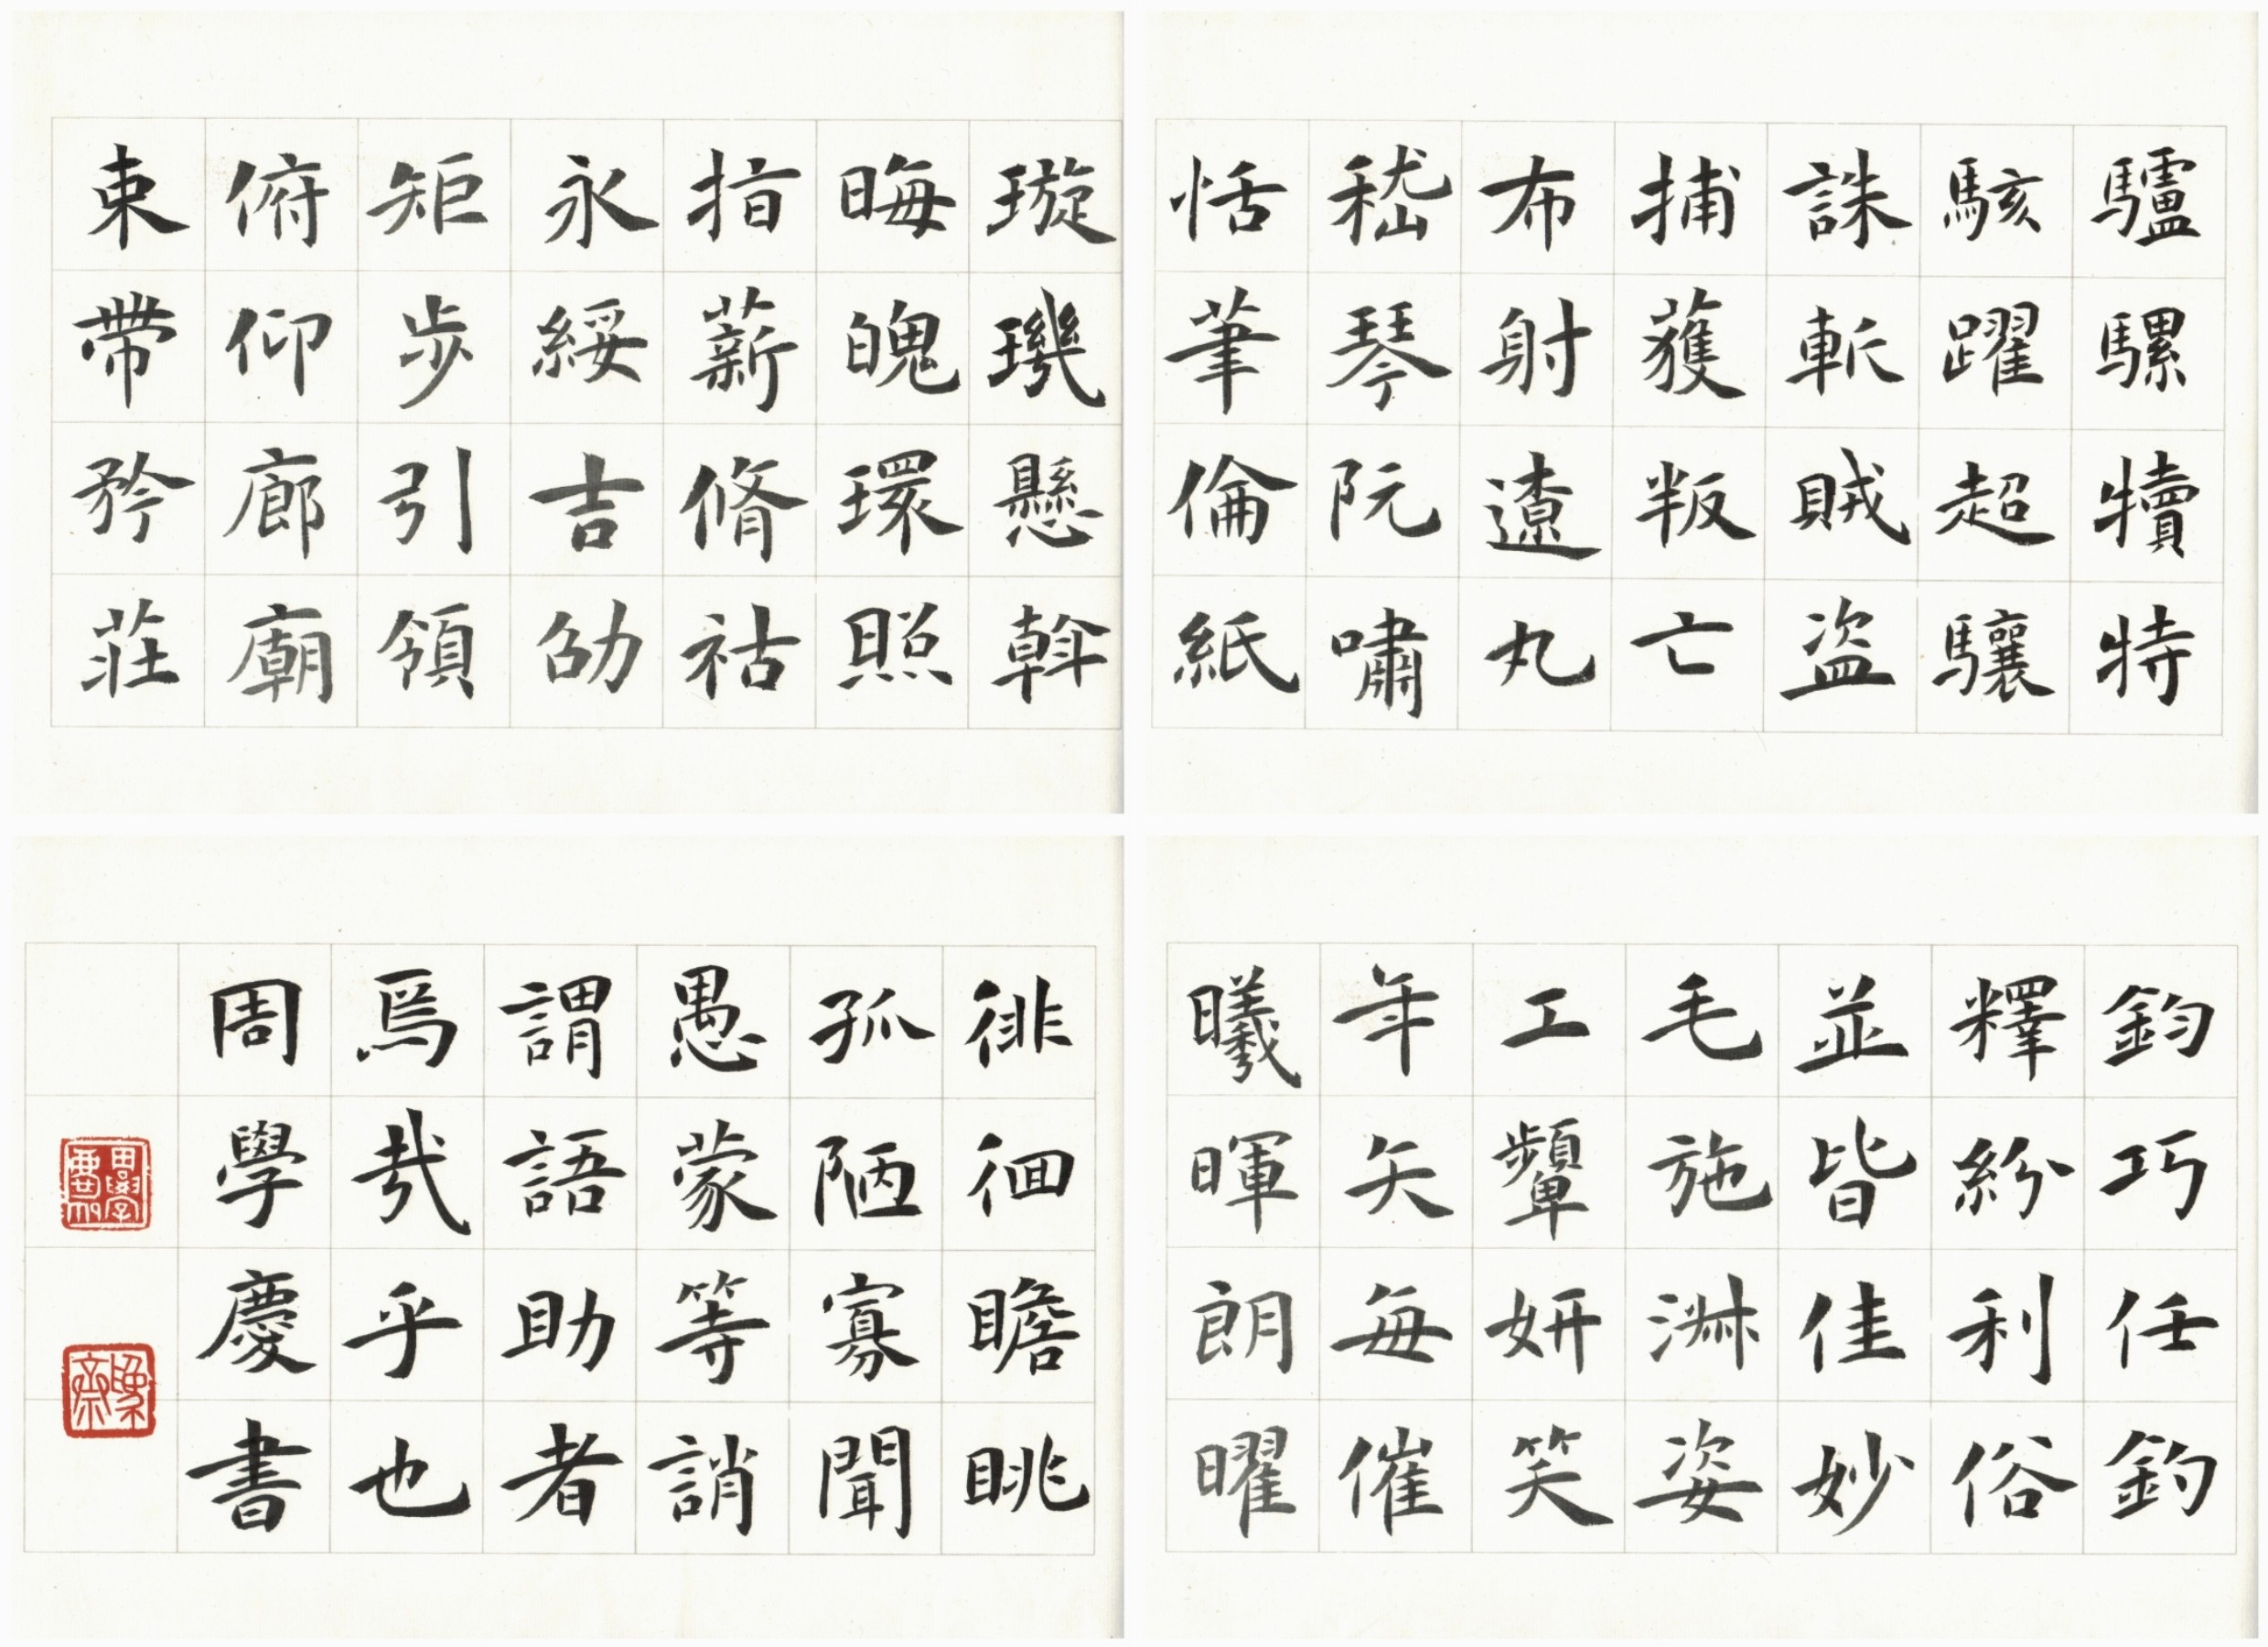 驢騾犢特
駭躍超驤
誅斬賊盜
捕獲叛亡
布射遼丸
嵇琴阮嘯
恬筆倫紙
鈞巧任釣
釋紛利俗
並皆佳妙
毛施淑姿
工顰妍笑
年矢每催
曦暉朗曜
璇璣懸斡
晦魄環照
指薪脩祜
永綏吉劭
矩步引領
俯仰廊廟
束帶矜莊
徘徊瞻眺
孤陋寡聞
愚蒙等誚
謂語助者
焉哉乎也
周學慶書